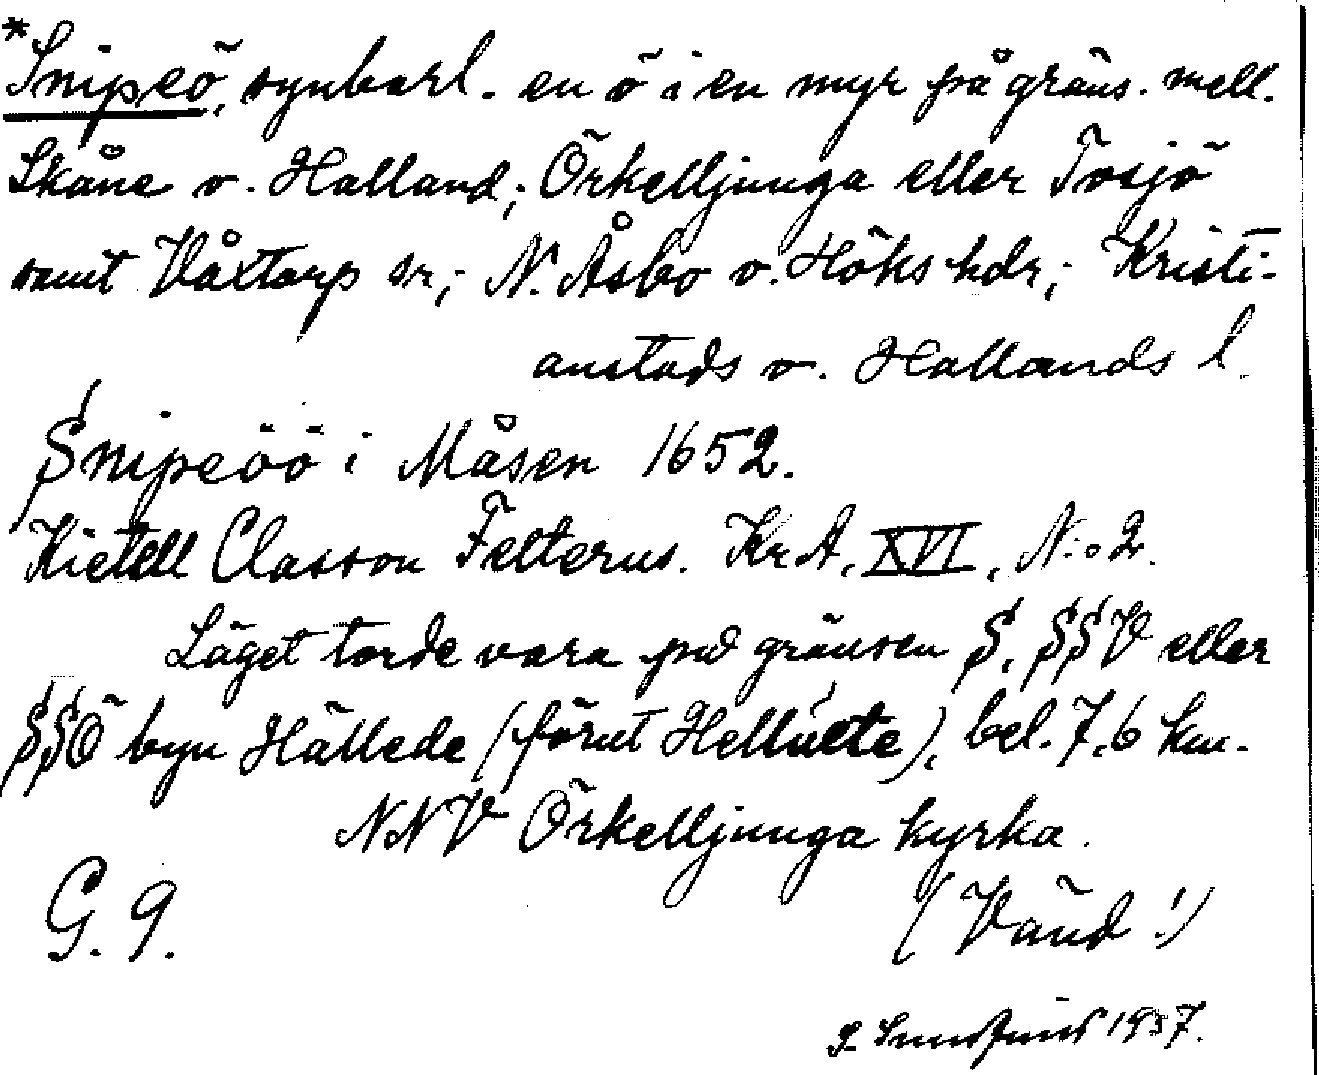 *Snipeö, synbarl. en ö i en myr på gräns. mell.
Skåne o. Halland; Örkelljunga eller Tosjö
samt Våxtorp sn; N. Åsbo o. Höks hdr; Kristi-
anstads o. Hallands l.
Snipeöö i Måsen 1652.
Kietell Classon Felterus. Kr A, XVI, N:o 2.
Läget torde vara på gränsen S, SSV eller
SSÖ byn Hällede (förut Helluete), bel. 7,6 km.
NNV Örkelljunga kyrka.
G. 9.
(Vänd!)
1937.